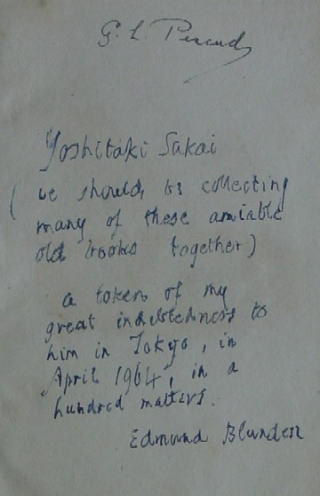 G. L.
Yoshitaki Sakai
(we should be collecting
many of these amiable
old books together)
a token of my
great indebtedness to
him in Tokyo, in
April 1964, in a
hundred matters.
Edmund Blunden